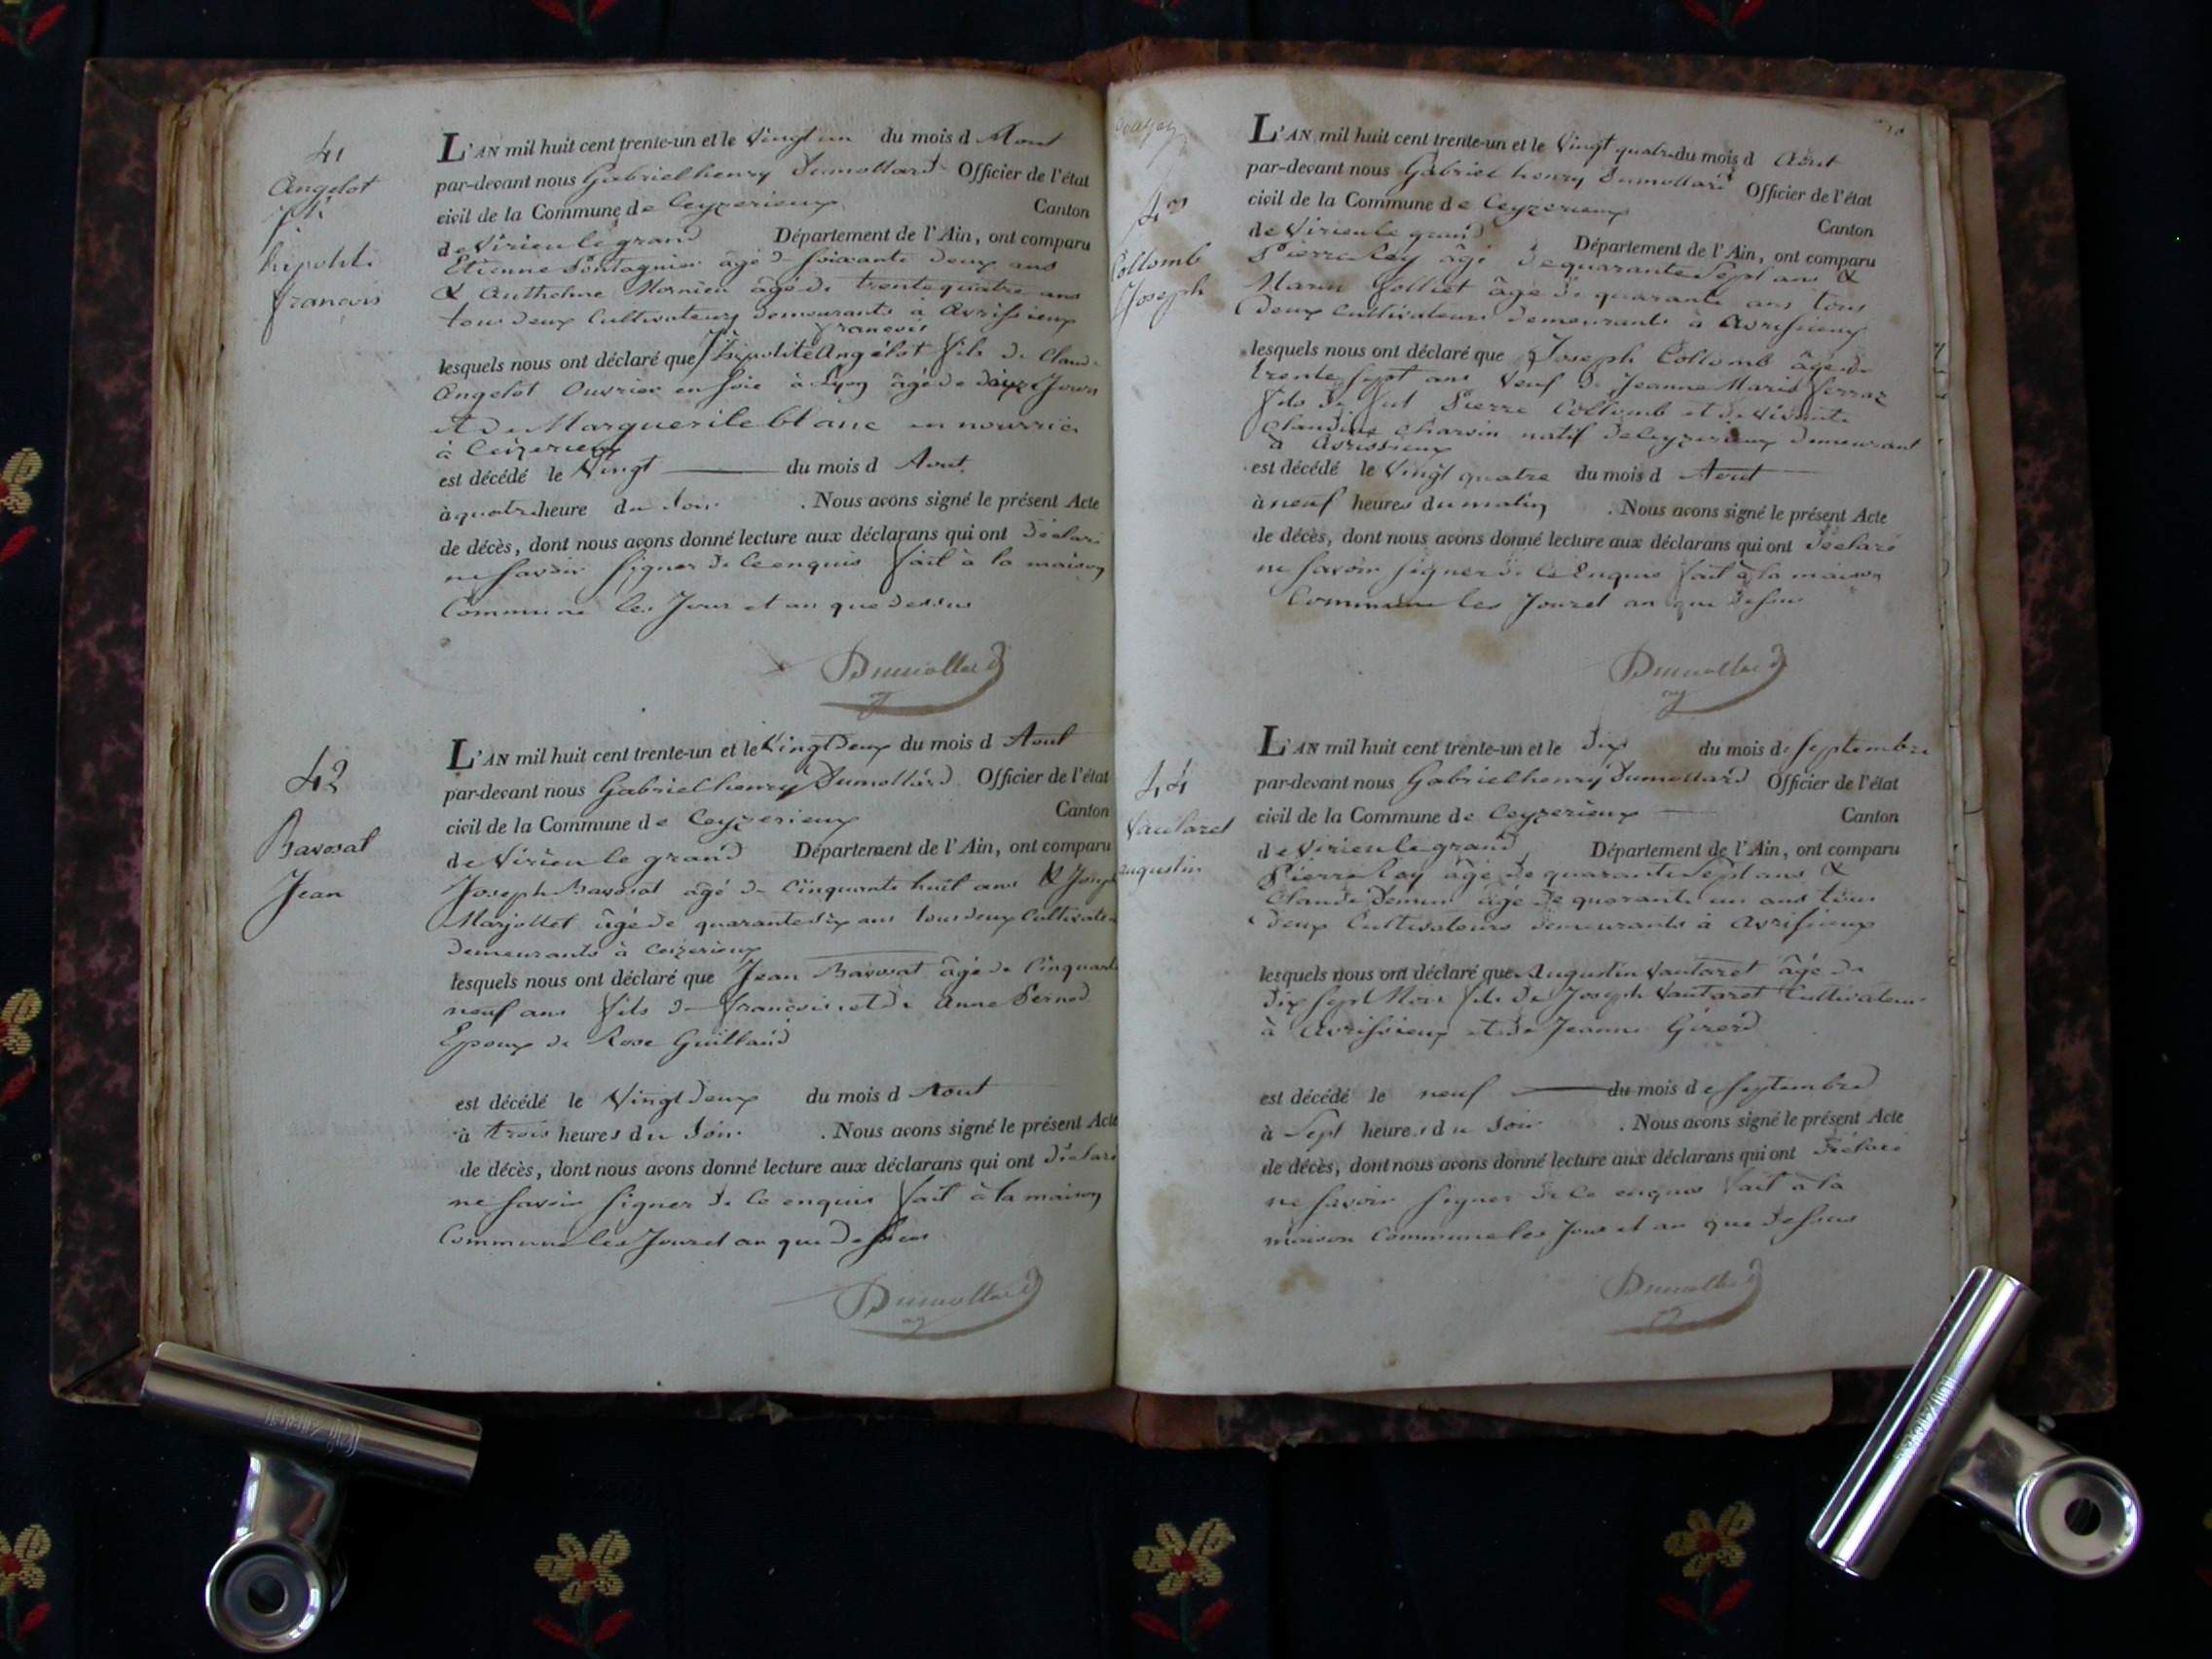 41
Angelot
hipolite
francois
L'AN mil huit cent trente-un et le Vingt un du mois d Aout
par-devant nous Gabriel henry Dumollard Officier de l'état
civil de la Commune de Ceyzerieux Canton
de Virieu le grand Département de l'Ain, ont comparu
Etienne Pontagnier âgé de soixante deux ans
& Anthelme Mornieu âgé de trente quatre ans
tous deux Cultivateurs demeurants à Avrissieux
francois
lesquels nous ont déclaré que hipolite Angelot fils de Claude
Angelot Ouvrier en soie à Lyon âgé de dix Jours
et de Marguerite blanc en nourrice
à Ceizerieux
est décédé le Vingt du mois d Aout
à quatre heure du soir . Nous avons signé le présent Acte
de décès, dont nous avons donné lecture aux déclarans qui ont déclaré
ne savoir signer de ce enquis fait à la maison
Commune les Jour et an que dessus
Dumollard
42
Bavosat
Jean
L'AN mil huit cent trente-un et le Vingt Deux du mois d Aout
par-devant nous Gabriel henry Dumollard Officier de l'état
civil de la Commune de Ceyzerieux Canton
de Virieu le grand Département de l'Ain, ont comparu
Joseph Bavosat âgé de Cinquante huit ans & Joseph
Marjollet âgé de quarante dix ans tous deux Cultivateurs
demeurants à Ceizerieux
lesquels nous ont déclaré que Jean Bavosat âgé de Cinquante
neuf ans fils de francois et de Anne Pernod
Epoux de Rose Guilland
est décédé le Vingt Deux du mois d Aout
à trois heures du soir . Nous avons signé le présent Acte
de décès, dont nous avons donné lecture aux déclarans qui ont déclaré
ne savoir signer de ce enquis fait à la maison
Commune les Jour et an que dessus
Dumollard
43
Collomb
Joseph
L'AN mil huit cent trente-un et le Vingt quatre du mois d Aout
par-devant nous Gabriel henry Dumollard Officier de l'état
civil de la Commune de Ceyzerieux Canton
de Virieu le grand Département de l'Ain, ont comparu
Pierre Rey âgé de quarante sept ans &
Marin Golliet âgé de quarante ans tous
deux Cultivateurs demeurants à Avrissieux
lesquels nous ont déclaré que Joseph Collomb âgé de
trente sept ans Veuf de Jeanne Marie Ferraz
fils de feut Pierre Collomb et de vivante
Claudine Charvin natif de Ceyzerieux demeurant
à Avrissieux
est décédé le Vingt quatre du mois d Aout
à neuf heures du matin . Nous avons signé le présent Acte
de décès, dont nous avons donné lecture aux déclarans qui ont déclaré
ne savoir signer de ce Enquis fait à la maison
Commune les Jour et an que dessus
Dumollard
44
Vautaret
augustin
L'AN mil huit cent trente-un et le dix du mois de septembre
par-devant nous Gabriel henry Dumollard Officier de l'état
civil de la Commune de Ceyzerieux Canton
de Virieu le grand Département de l'Ain, ont comparu
Pierre Rey âgé de quarante sept ans &
Claude Demeur âgé de quarante un ans tous
deux Cultivateurs demeurants à Avrissieux
lesquels nous ont déclaré que Augustin Vautaret âgé de
dix sept Mois fils de Joseph Vautaret Cultivateur
à Avrissieux et de Jeanne Girerd
est décédé le neuf du mois de septembre
à Sept heures du soir . Nous avons signé le présent Acte
de décès, dont nous avons donné lecture aux déclarans qui ont déclaré
ne savoir signer de ce enquis fait à la
maison Commune les Jour et an que dessus
Dumollard